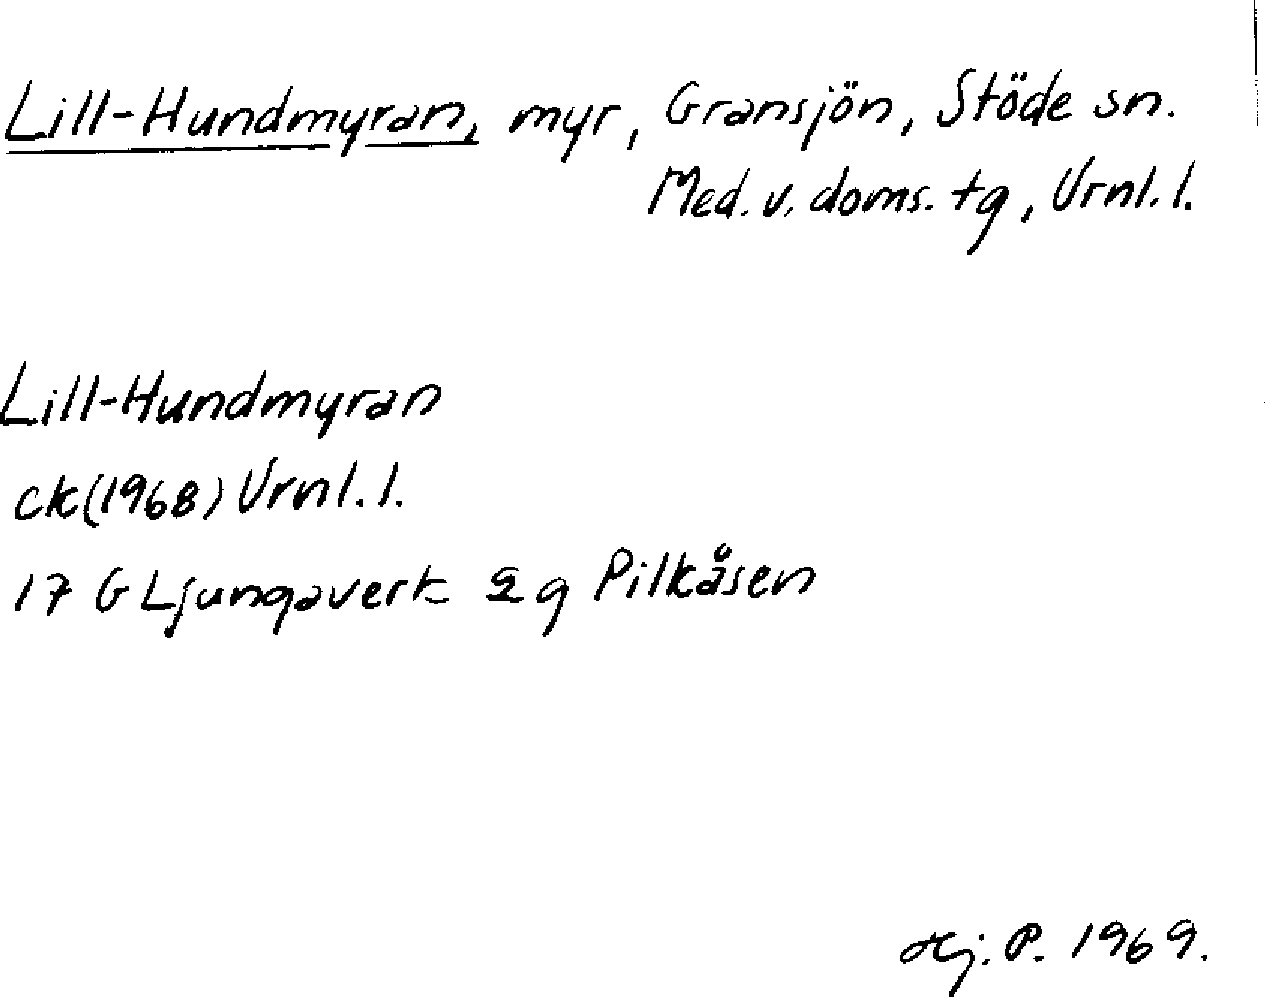 Lill-Hundmyran, myr, Gransjön, Stöde sn.
Med. v. doms. tg, Vrnl. l.
Lill-Hundmyran
ck(1968) Vrnl. l.
17 G Ljungaverk 2 g Pilkåsen
Hj. P. 1969.